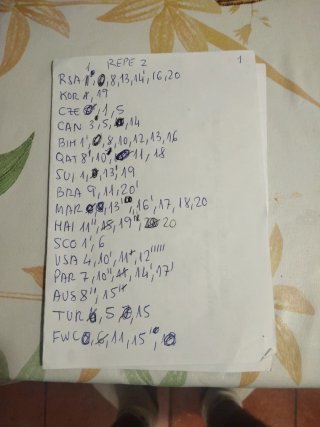 1 REPE 2 1
RSA 1', 8, 13, 14', 16, 20
KOR 1, 19
CZE 1, 5
CAN 3', 5, 14
BIH 1', 8, 10, 12, 13, 16
QAT 8', 10', 11, 18
SUI 1, 13', 19
BRA 9, 11, 20'
MAR 13, 16', 17, 18, 20
HAI 11", 15, 19", 20
SCO 1', 6
USA 4, 10', 11, 12'''''
PAR 7, 10", 11, 14', 17'
AUS 8", 15"
TUR 5, 15
FWC 6, 11, 15